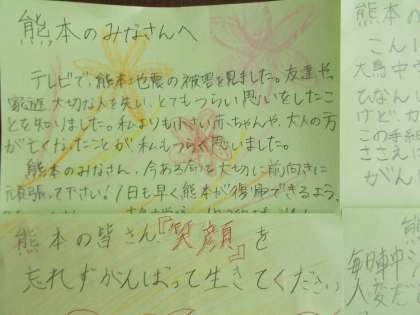 熊本のみなさんへ
テレビで、熊本地震の被害を見ました。友達や、
家族、大切な人を失い、とてもつらい思いをしたこ
とを知りました。私よりも小さい赤ちゃんや、大人の方
が亡くなったことが、私もつらく思いました。
熊本のみなさん、今ある命を大切に前向きに
頑張って下さい！1日も早く熊本が復興できるよう、
熊本の皆さん『笑顔』を
忘れずがんばって生きてください
熊本の
こんに
大島中
ひなん
けど、
この手紙
ささえ
がん
毎日